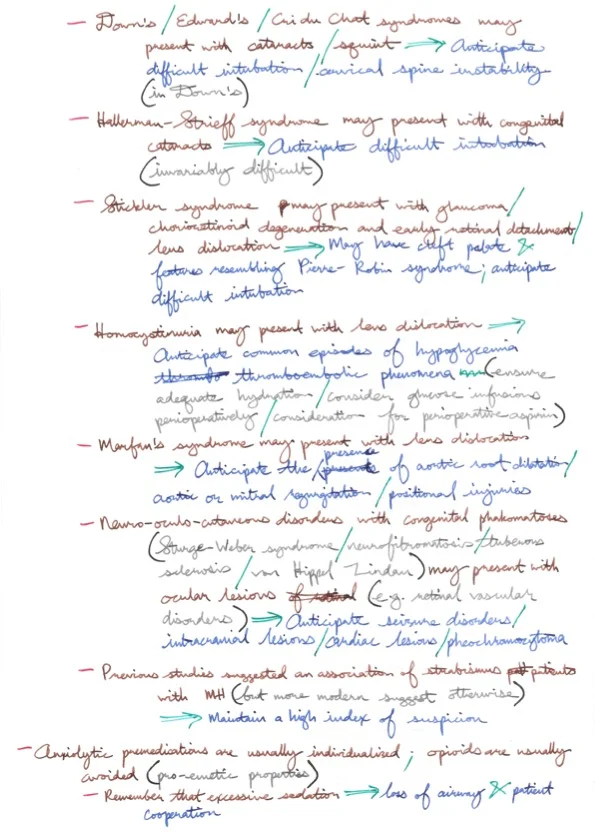 - Down's / Edward's / Cri du Chat syndromes may
present with cataracts / squint → Anticipate
difficult intubation / cervical spine instability
(in Down's)
- Hallerman-Strieff syndrome may present with congenital
cataracts → Anticipate difficult intubation
(invariably difficult)
- Stickler syndrome may present with glaucoma /
chorioretinoid degeneration and early retinal detachment /
lens dislocation → May have cleft palate &
features resembling Pierre-Robin syndrome; anticipate
difficult intubation
- Homocystinuria may present with lens dislocation →
Anticipate common episodes of hypoglycemia
thrombo thromboembolic phenomena (ensure
adequate hydration / consider glucose infusions
perioperatively / consideration for perioperative aspirin)
- Marfan's syndrome may present with lens dislocation
presence
→ Anticipate the / of aortic root dilatation /
aortic or mitral regurgitation / positional injuries
- Neuro-oculo-cutaneous disorders with congenital phakomatoses
(Sturge-Weber syndrome / neurofibromatosis / tuberous
sclerosis / van Hippel Lindau) may present with
ocular lesions of retinal (e.g. retinal vascular
disorders) → Anticipate seizure disorders /
intracranial lesions / cardiac lesions / pheochromocytoma
- Previous studies suggested an association of strabismus patients
with MH (but more modern suggest otherwise)
→ Maintain a high index of suspicion
- Anxiolytic premediations are usually individualized; opioids are usually
avoided (pro-emetic properties)
- Remember that excessive sedation → loss of airway & patient
cooperation